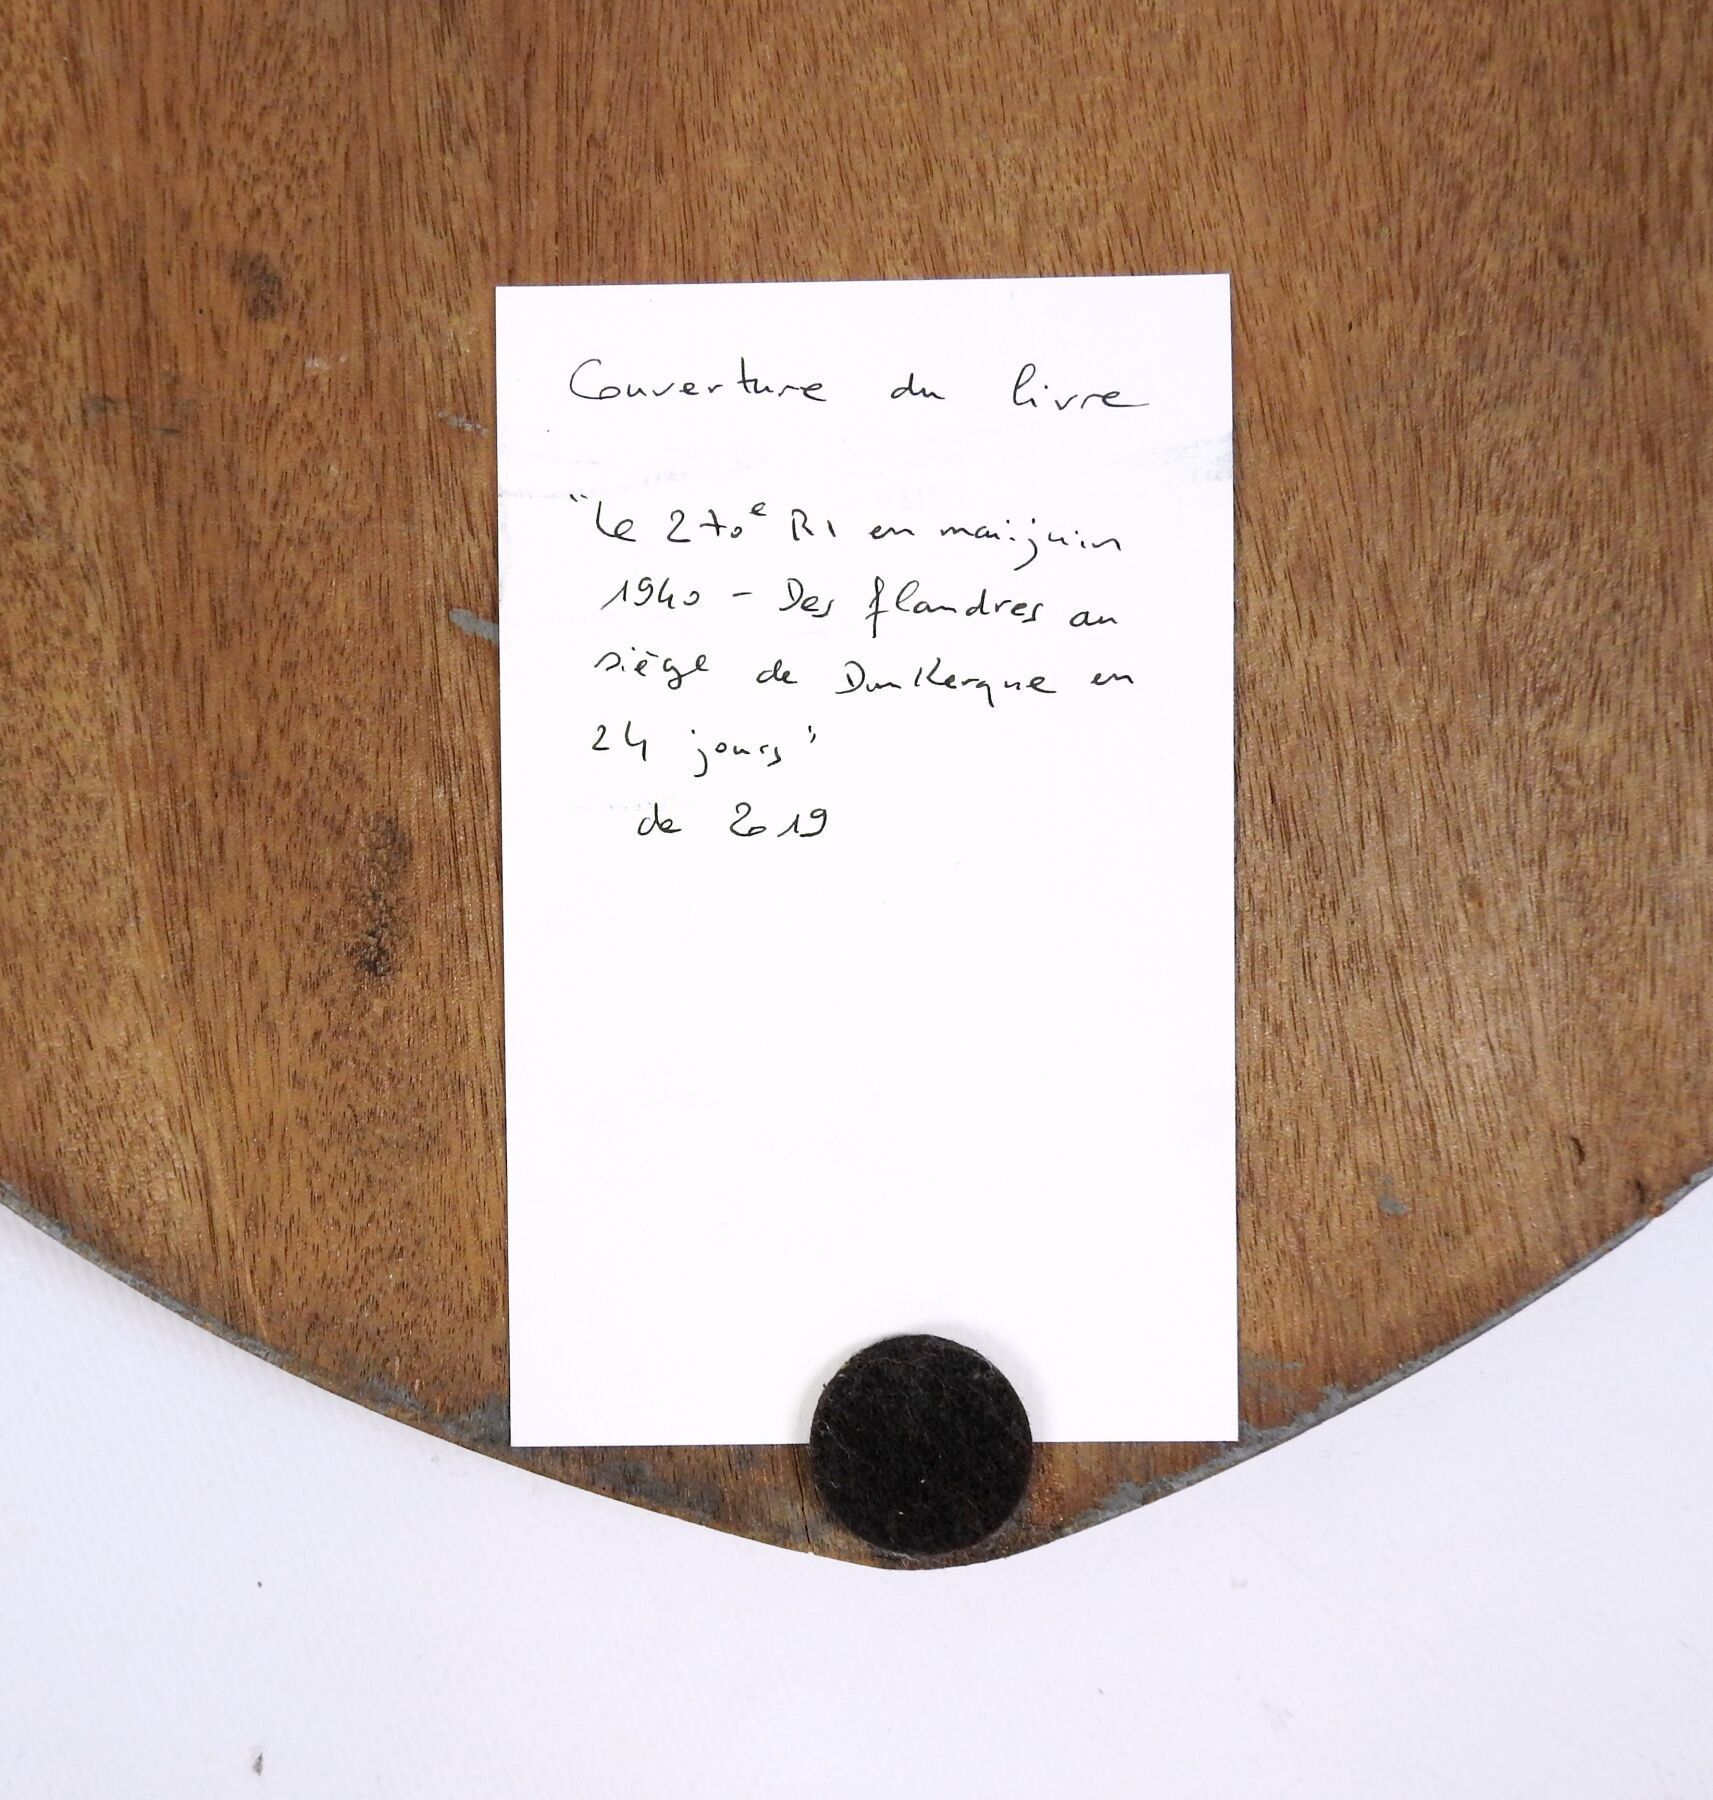 Couverture du livre
"Le 270e RI en mai-juin
1940 - Des flandres au
siège de Dunkerque en
24 jours"
de 2019